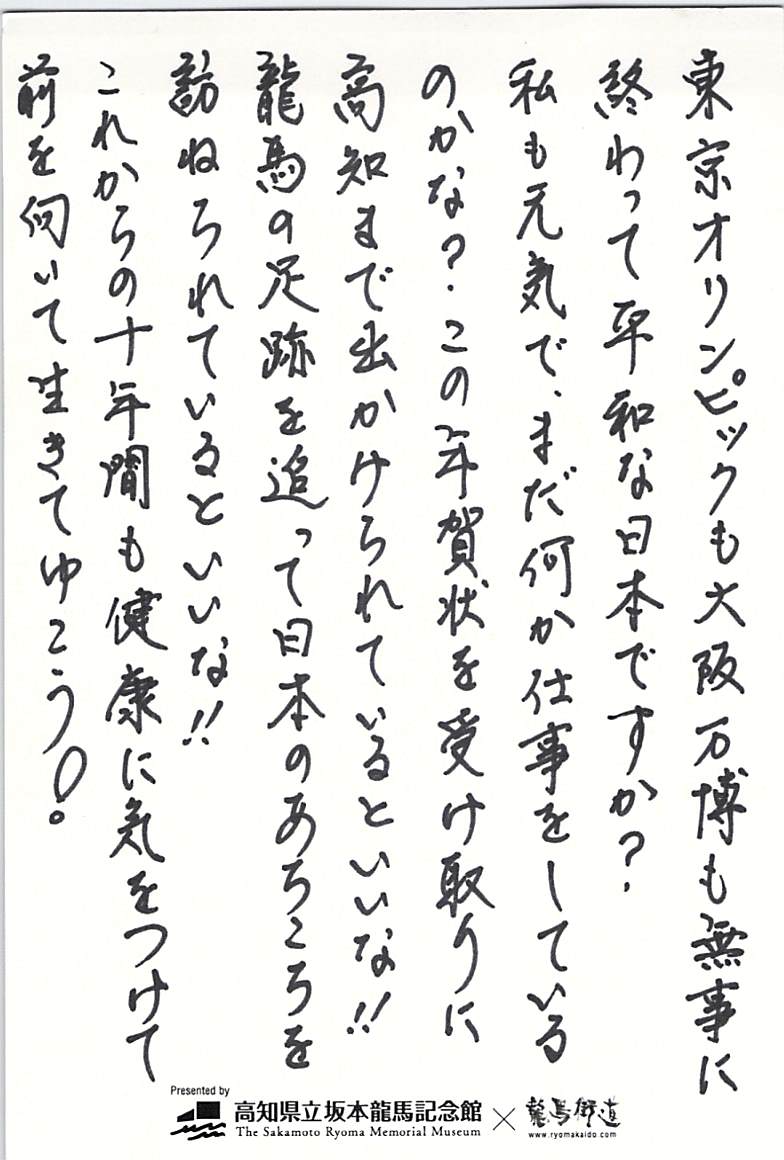 東京オリンピックも大阪万博も無事に
終わって平和な日本ですか？
私も元気で、まだ何か仕事をしている
のかな？この年賀状を受け取りに
高知まで出かけられているといいな!!
龍馬の足跡を追って日本のあちこちを
訪ねられているといいな!!
これからの十年間も健康に気をつけて
前を向いて生きてゆこう！
Presented by
高知県立坂本龍馬記念館
The Sakamoto Ryoma Memorial Museum
×
龍馬街道
www.ryomakaido.com